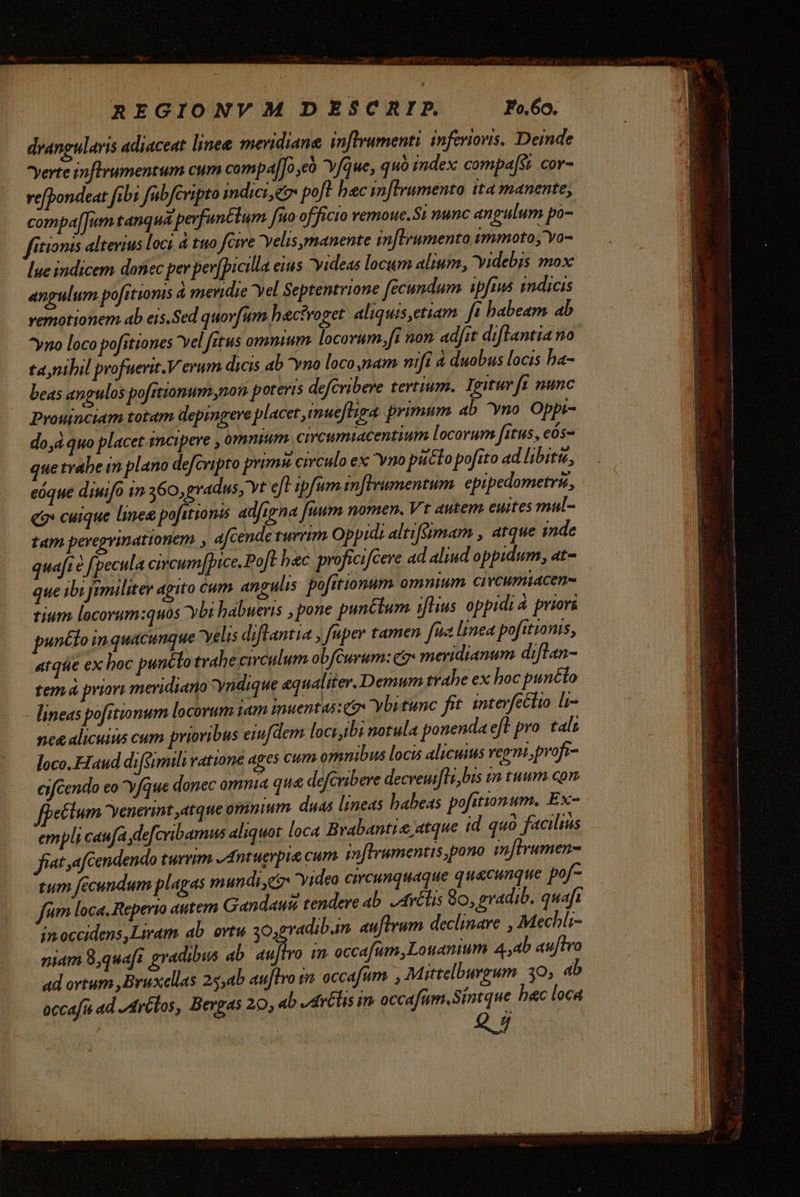 REGIONVM DESCRIP. Fo.60.
drangularis adiaceat lineæ meridianæ inſtrumenti inferioris. Deinde
verte inſtrumentum cum compaſſo, eò vſque, quò index compaſsi cor-
reſpondeat ſibi ſubſcripto indici, & poſt hæc inſtrumento ita manente,
compaſſum tanquã perfunctum ſuo officio remoue. Si nunc angulum po-
ſitionis alterius loci à tuo ſcire velis, manente inſtrumento immoto, vo-
lue indicem donec per perſpicilla eius videas locum alium, videbis mox
angulum poſitionis à meridie vel Septentrione ſecundum ipſius indicis
remotionem ab eis. Sed quorſum hæc? roget aliquis, etiam ſi habeam ab
vno loco poſitiones vel ſitus omnium locorum, ſi non adſit diſtantia no
ta, nihil profuerit. Verum dicis ab vno loco, nam niſi à duobus locis ha-
beas angulos poſitionum, non poteris deſcribere tertium. Igitur ſi nunc
Prouinciam totam depingere placet, inueſtiga primum ab vno Oppi-
do, à quo placet incipere, omnium circumiacentium locorum ſitus, eós-
que trahe in plano deſcripto primũ circulo ex vno pũcto poſito ad libitũ,
eóque diuiſo in 360, gradus, vt eſt ipſum inſtrumentum epipedometrũ,
& cuique lineæ poſitionis adſigna ſuum nomen. Vt autem euites mul-
tam peregrinationem, aſcende turrim Oppidi altiſsimam, atque inde
quaſi è ſpecula circumſpice. Poſt hæc proficiſcere ad aliud oppidum, at-
que ibi ſimiliter agito cum angulis poſitionum omnium circumiacen-
tium locorum: quos vbi habueris, pone punctum iſtius oppidi à priori
puncto in quacunque velis diſtantia, ſuper tamen ſua linea poſitionis,
atque ex hoc puncto trahe circulum obſcurum: & meridianum diſtan-
tem à priori meridiano vndique æqualiter. Demum trahe ex hoc puncto
lineas poſitionum locorum iam inuentas: & vbi tunc fit interſectio li-
neæ alicuius cum prioribus eiuſdem loci, ibi notula ponenda eſt pro tali
loco. Haud diſsimili ratione ages cum omnibus locis alicuius regni, profi-
ciſcendo eo vſque donec omnia quæ deſcribere decreuiſti, bis in tuum con
ſpectum venerint, atque omnium duas lineas habeas poſitionum. Ex-
empli cauſa, deſcribamus aliquot loca Brabantiæ, atque id quò facilius
fiat, aſcendendo turrim Antuerpiæ cum inſtrumentis, pono inſtrumen-
tum ſecundum plagas mundi, & video circunquaque quæcunque poſ-
ſum loca. Reperio autem Gandauũ tendere ab Arctis 80, gradib. quaſi
in occidens, Liram ab ortu 30, gradib. in auſtrum declinare, Mechli-
niam 8, quaſi gradibus ab auſtro in occaſum, Louanium 4, ab auſtro
ad ortum, Bruxellas 25, ab auſtro in occaſum, Mittelburgum 30, ab
occaſu ad Arctos, Bergas 20, ab Arctis in occaſum. Sintque hæc loca
Q ij